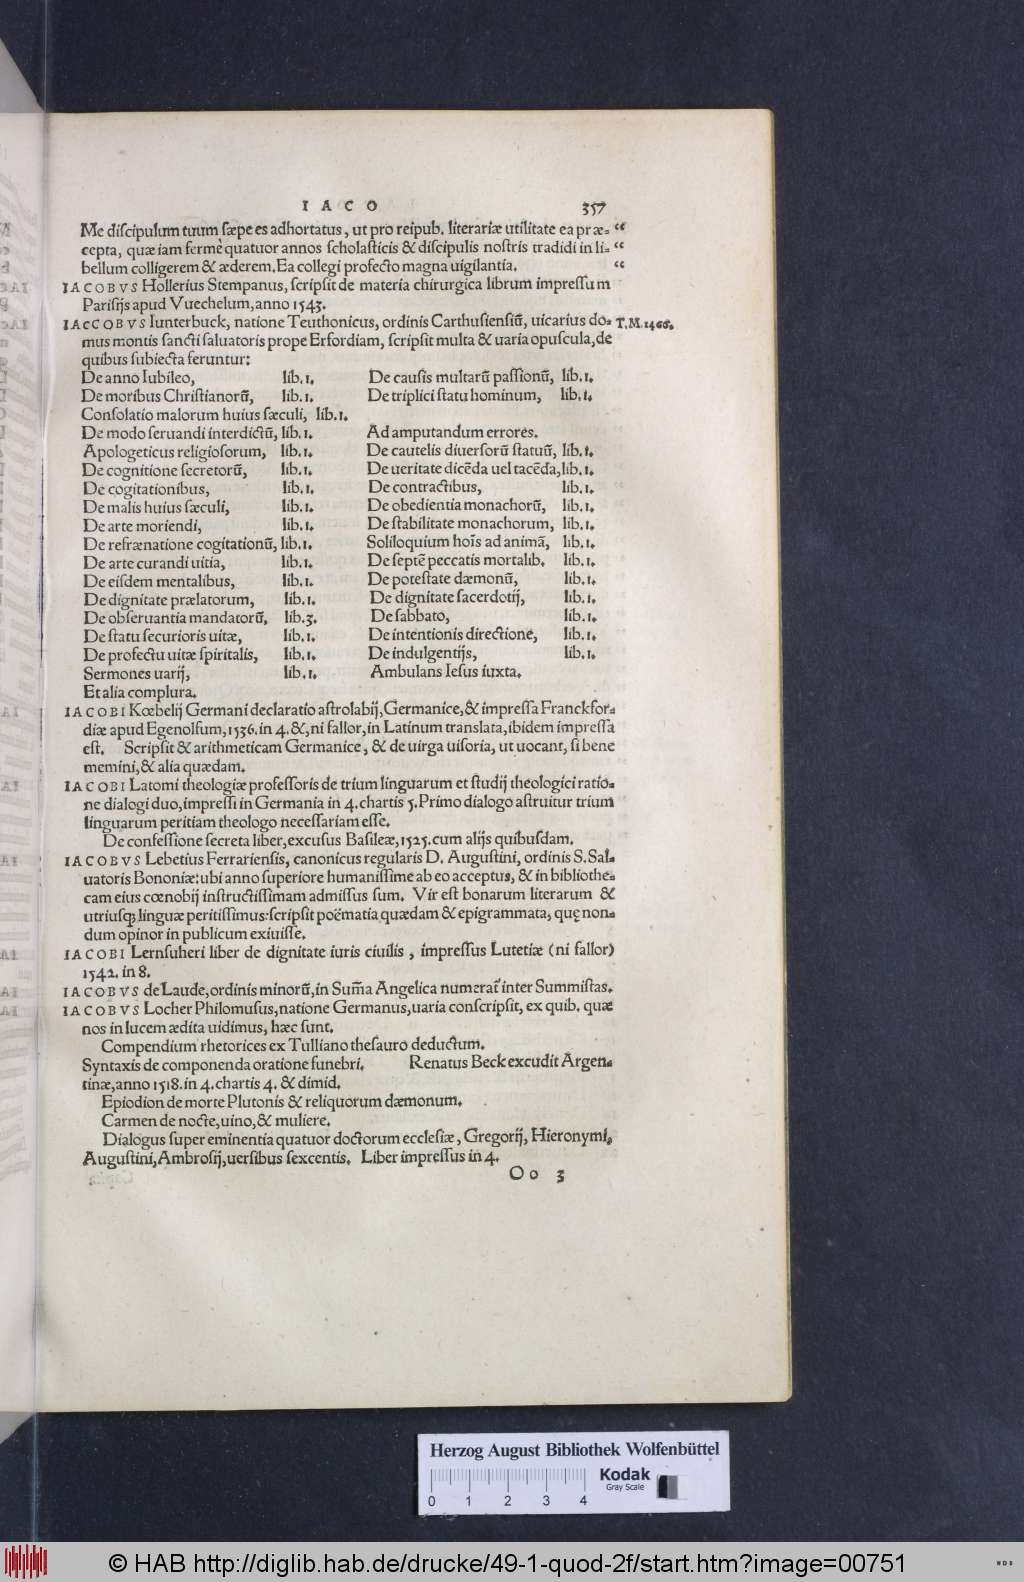 I A C O 357
Me discipulum tuum sæpe es adhortatus, ut pro reipub. literariæ utilitate ea præ= “
cepta, quæ iam fermè quatuor annos scholasticis & discipulis nostris tradidi in li= “
bellum colligerem & æderem. Ea collegi profecto magna uigilantia. “
IACOBVS Hollerius Stempanus, scripsit de materia chirurgica librum impressum
Parisijs apud Vuechelum, anno 1543.
IACCOBVS Iunterbuck, natione Teuthonicus, ordinis Carthusiensiũ, uicarius do= T.M.1466.
mus montis sancti saluatoris prope Erfordiam, scripsit multa & uaria opuscula, de
quibus subiecta feruntur:
De anno Iubileo, lib.1. De causis multarũ passionũ, lib.1.
De moribus Christianorũ, lib.1. De triplici statu hominum, lib.1.
Consolatio malorum huius sæculi, lib.1.
De modo seruandi interdictũ, lib.1. Ad amputandum errores.
Apologeticus religiosorum, lib.1. De cautelis diuersorũ statuũ, lib.1.
De cognitione secretorũ, lib.1. De ueritate dicẽda uel tacẽda, lib.1.
De cogitationibus, lib.1. De contractibus, lib.1.
De malis huius sæculi, lib.1. De obedientia monachorũ, lib.1.
De arte moriendi, lib.1. De stabilitate monachorum, lib.1.
De refrænatione cogitationũ, lib.1. Soliloquium hoĩs ad animã, lib.1.
De arte curandi uitia, lib.1. De septẽ peccatis mortalib. lib.1.
De eisdem mentalibus, lib.1. De potestate dæmonũ, lib.1.
De dignitate prælatorum, lib.1. De dignitate sacerdotij, lib.1.
De obseruantia mandatorũ, lib.3. De sabbato, lib.1.
De statu securioris uitæ, lib.1. De intentionis directione, lib.1.
De profectu uitæ spiritalis, lib.1. De indulgentijs, lib.1.
Sermones uarij, lib.1. Ambulans Iesus iuxta.
Et alia complura.
IACOBI Kœbelij Germani declaratio astrolabij, Germanice, & impressa Franckfor=
diæ apud Egenolfum, 1536. in 4. &, ni fallor, in Latinum translata, ibidem impressa
est. Scripsit & arithmeticam Germanice, & de uirga uisoria, ut uocant, si bene
memini, & alia quædam.
IACOBI Latomi theologiæ professoris de trium linguarum et studij theologici ratio=
ne dialogi duo, impressi in Germania in 4. chartis 5. Primo dialogo astruitur trium
linguarum peritiam theologo necessariam esse.
De confessione secreta liber, excusus Basileæ, 1525. cum alijs quibusdam.
IACOBVS Lebetius Ferrariensis, canonicus regularis D. Augustini, ordinis S. Sal=
uatoris Bononiæ: ubi anno superiore humanissime ab eo acceptus, & in bibliothe=
cam eius cœnobij instructissimam admissus sum. Vir est bonarum literarum &
utriusq; linguæ peritissimus: scripsit poëmatia quædam & epigrammata, quę non=
dum opinor in publicum exiuisse.
IACOBI Lernsuheri liber de dignitate iuris ciuilis, impressus Lutetiæ (ni fallor)
1542. in 8.
IACOBVS de Laude, ordinis minorũ, in Sum̃a Angelica numerat̃ inter Summistas.
IACOBVS Locher Philomusus, natione Germanus, uaria conscripsit, ex quib. quæ
nos in lucem ædita uidimus, hæc sunt.
Compendium rhetorices ex Tulliano thesauro deductum.
Syntaxis de componenda oratione funebri. Renatus Beck excudit Argen=
tinæ, anno 1518. in 4. chartis 4. & dimid.
Epiodion de morte Plutonis & reliquorum dæmonum.
Carmen de nocte, uino, & muliere.
Dialogus super eminentia quatuor doctorum ecclesiæ, Gregorij, Hieronymi,
Augustini, Ambrosij, uersibus sexcentis. Liber impressus in 4.
Oo 3
Herzog August Bibliothek Wolfenbüttel
Kodak
Gray Scale
0 1 2 3 4
© HAB http://diglib.hab.de/drucke/49-1-quod-2f/start.htm?image=00751